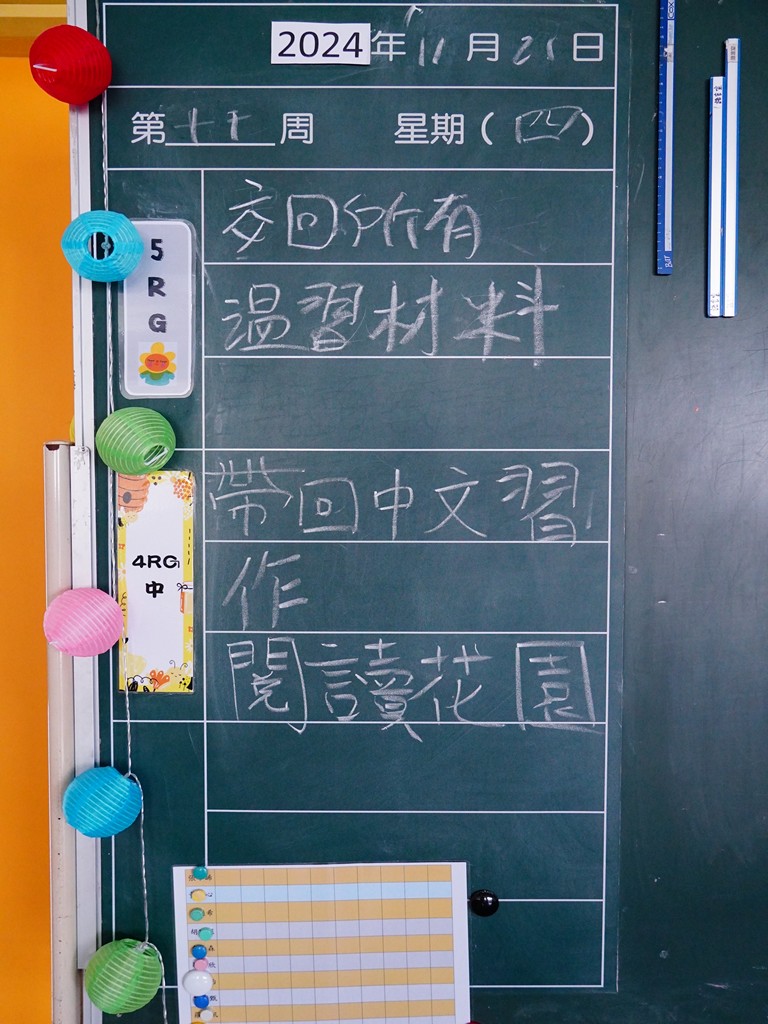 2024年11月21日
第十周 星期(四)
5RG
交回所有
溫習材料
4RG
中
帶回中文習
作
閱讀花園